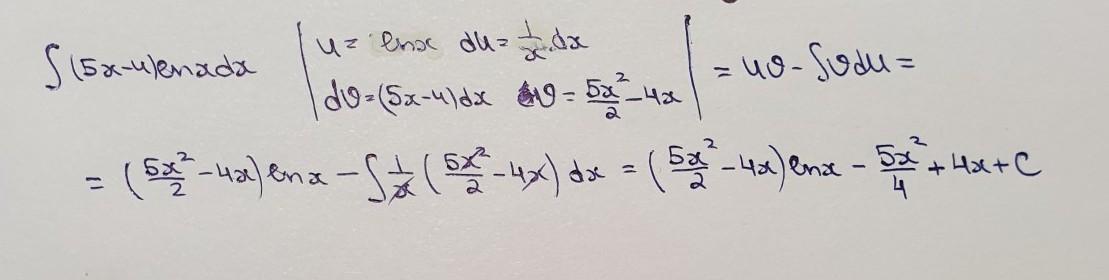 ∫(5x-4)lnxdx | u = lnx du = 1/x dx dv = (5x-4)dx v = 5x²/2 - 4x | = uv - ∫vdu =
= (5x²/2 - 4x) lnx - ∫ 1/x (5x²/2 - 4x) dx = (5x²/2 - 4x) lnx - 5x²/4 + 4x + C